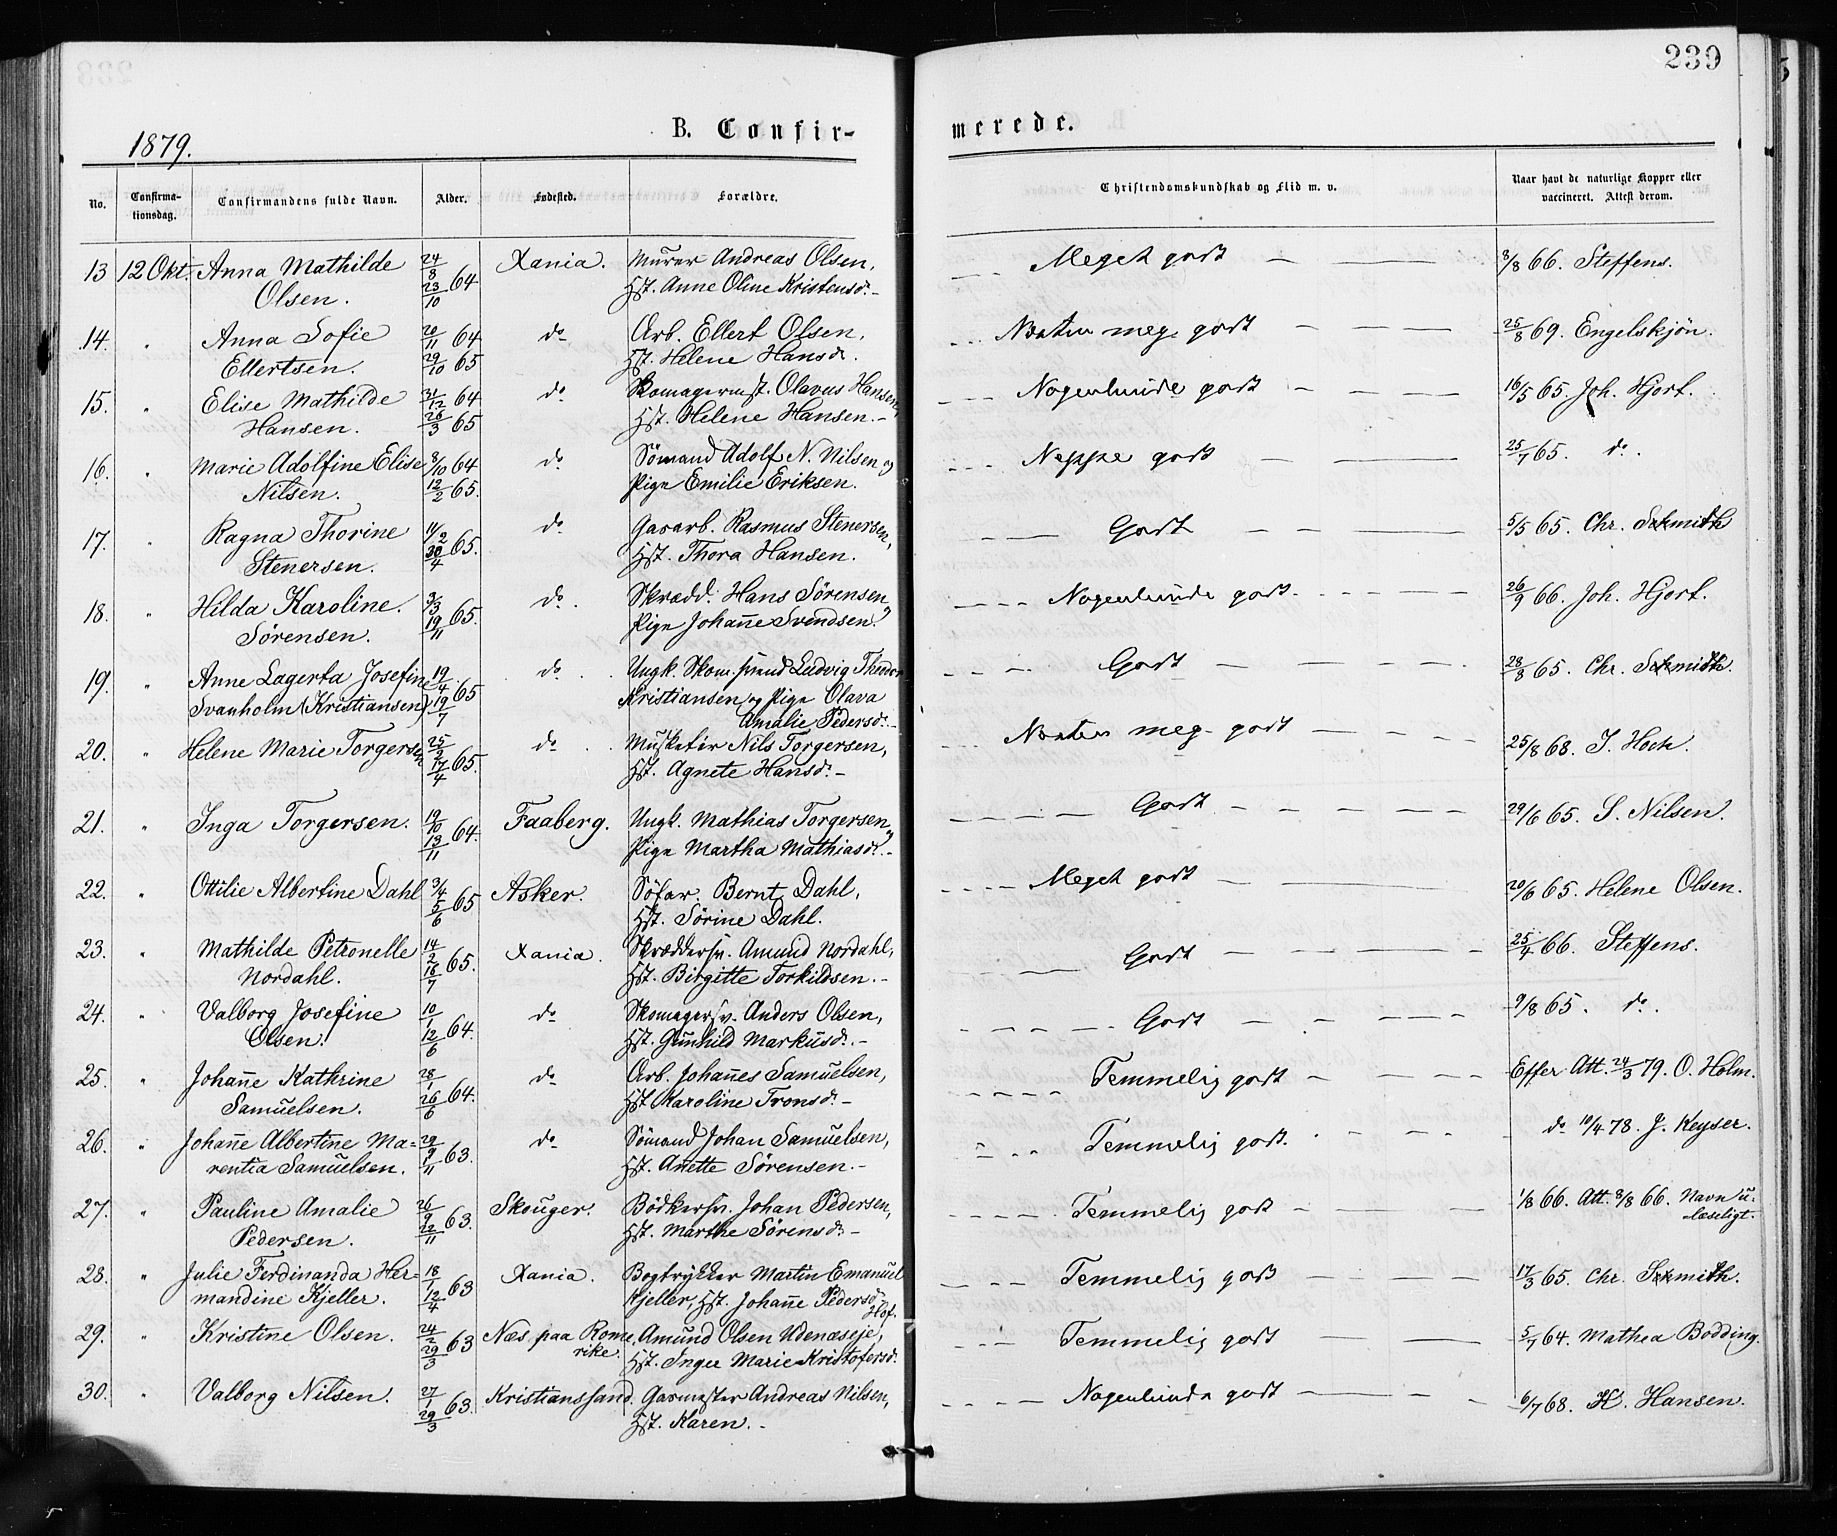 239
1879.
B. Confir-
merede.
No.
Confirma-
tionsdag.
Confirmandens fulde Navn.
Alder.
Fødested.
Forældre.
Christendomskundskab og Flid m. v.
Naar havt de naturlige Kopper eller
vaccineret. Attest derom.
13 12 Okt. Anna Mathilde 24/8 64 Xania. Murer Andreas Olsen, Meget godt 8/8 66. Steffens.
Olsen. 23/10 Hst. Anne Oline Kristensd.
14. " Anna Sofie 20/11 64 do Arb. Ellert Olsen, Næsten meg. godt 25/8 69. Engelskjön.
Ellertsen. 29/10 65 Hst. Helene Hansd.
15. " Elise Mathilde 31/12 64 do Skomagermst. Olavus Hansen, Nogenlunde godt 16/5 65. Joh. Hjort.
Hansen. 26/3 65 Hst. Helene Hansen.
16. " Marie Adolfine Elise 8/10 64 do Sömand Adolf N. Nilsen og Neppe godt 25/7 65. do.
Nilsen. 12/2 65. Pige Emilie Eriksen.
17. " Ragna Thorine 11/2 65. do Gasarb. Rasmus Stenersen, Godt 5/5 65. Chr. Schmidt
Stenersen. 30/4 Hst. Thora Hansen.
18. " Hilda Karoline 3/3 65. do. Skrædd. Hans Sörensen og Nogenlunde godt. 26/9 66. Joh. Hjort.
Sörensen. 19/11 Pige Johanne Svendsen.
19. " Anne Lagerta Josefine 19/4 65 do Ungk. Skom.svend Ludvig Theodor Godt 28/8 65. Chr. Schmidt.
Svanholm (Kristiansen) 19/7 Kristiansen og Pige Olava
Amalie Pedersd.
20. " Helene Marie Torgersen 25/2 65. do Musketer Nils Torgersen, Næsten meg. godt 25/8 68. J. Hoch.
17/4 Hst. Agnete Hansd.
21. " Inga Torgersen. 19/10 64. Faaberg. Ungk. Mathias Torgersen og Godt 29/6 65. S. Nilsen.
13/11 Pige Martha Mathiasd.
22. " Ottilie Albertine Dahl 3/4 65 Asker. Söfar. Bernt Dahl, Meget godt 20/6 65. Helene Olsen.
5/6 Hst. Sörine Dahl.
23. " Mathilde Petronelle 14/2 65. Xania. Skræddersv. Amund Nordahl, Godt 25/4 66. Steffens.
Nordahl. 16/7 Hst. Birgitte Torkildsen.
24. " Valborg Josefine 10/1 64. do Skomagersv. Anders Olsen, Godt 9/8 65. do.
Olsen. 12/6 Hst. Gunhild Markusd.
25. " Johanne Kathrine 28/1 64. do Arb. Johannes Samuelsen, Temmelig godt Efter Att. 24/3 79. O. Holm.
Samuelsen. 26/6 Hst Karoline Tronsd.
26. " Johanne Albertine Ma- 29/9 63. do Sömand Johan Samuelsen, Temmelig godt. do 10/4 78. J. Keyser.
rentia Samuelsen. /11 Hst. Anette Sörensen.
27. " Pauline Amalie 26/9 63. Skouger. Bödkersv. Johan Pedersen, Temmelig godt 1/8 66. Att. 8/8 66. Navn u-
læseligt.
Pedersen. 12/11 Hst. Marthe Sörensd.
28. " Julie Ferdinanda Her- 18/1 63 Xania. Bogtrykker Martin Emanuel Temmelig godt 17/3 65. Chr. Schmidt.
mandine Kjeller. 12/4 Kjeller, Hst. Johanne Pedersd.
Hof.
29. " Kristine Olsen. 24/2 63 Næs paa Rome- Amund Olsen Udenæseje, Temmelig godt 5/7 64. Mathea Bodding.
29/3 rike. Hst. Inger Marie Kristofersd.
30. " Valborg Nilsen. 27/1 63. Kristianssand. Gasmester Andreas Nilsen, Nogenlunde godt 6/7 68. K. Hansen.
29/3 Hst. Karen.